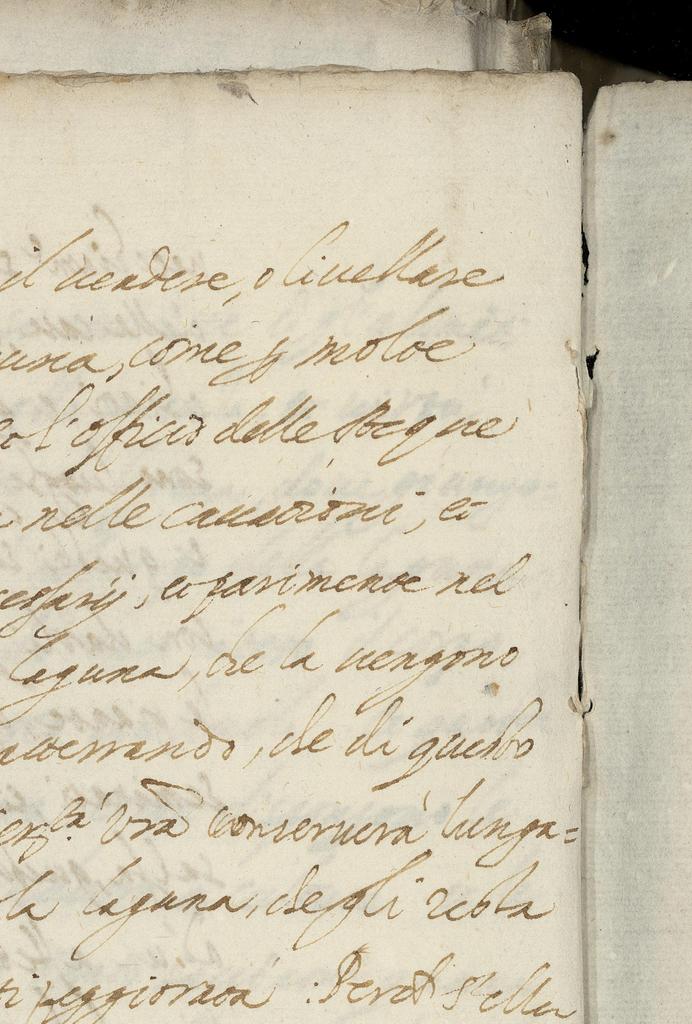 il uendere, o liuellare
una, come p molte
l'officio delle Acque
nelle cauationi, et
cessarij, et parimente nel
laguna, che la uengono
atterrando, che di questo
Ser.tà Vrã conseruerà lunga=
la laguna, che gli resta
ti peggiorata : Perch s'ella